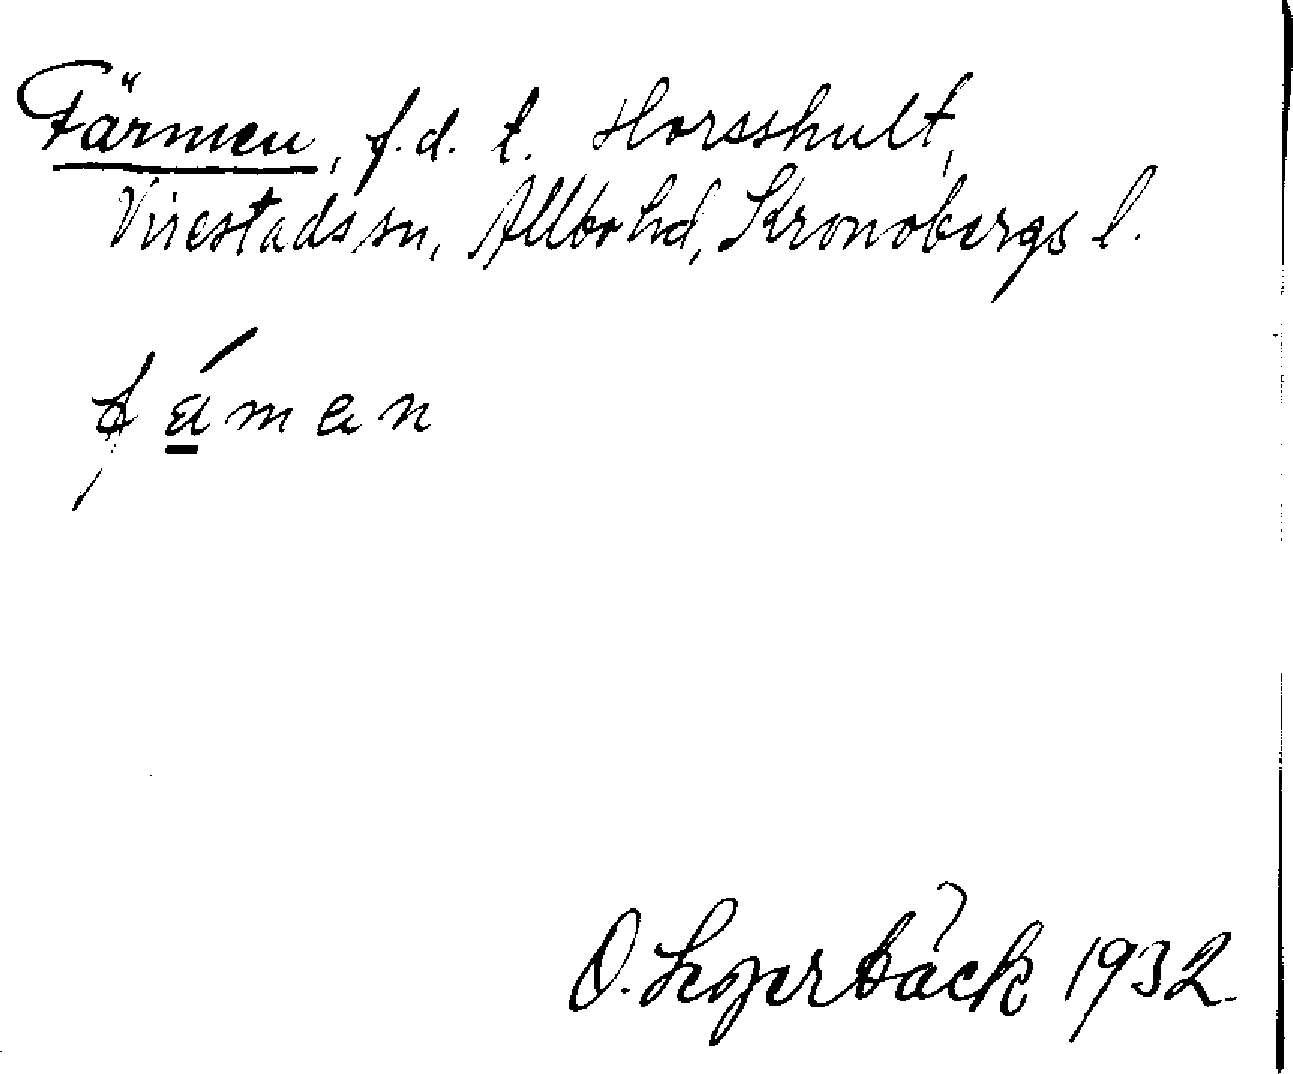 Färmen, f.d. t. Horsshult,
Virestads sn, Allbo hd, Kronobergs l.
O. Segerbäck 1932.